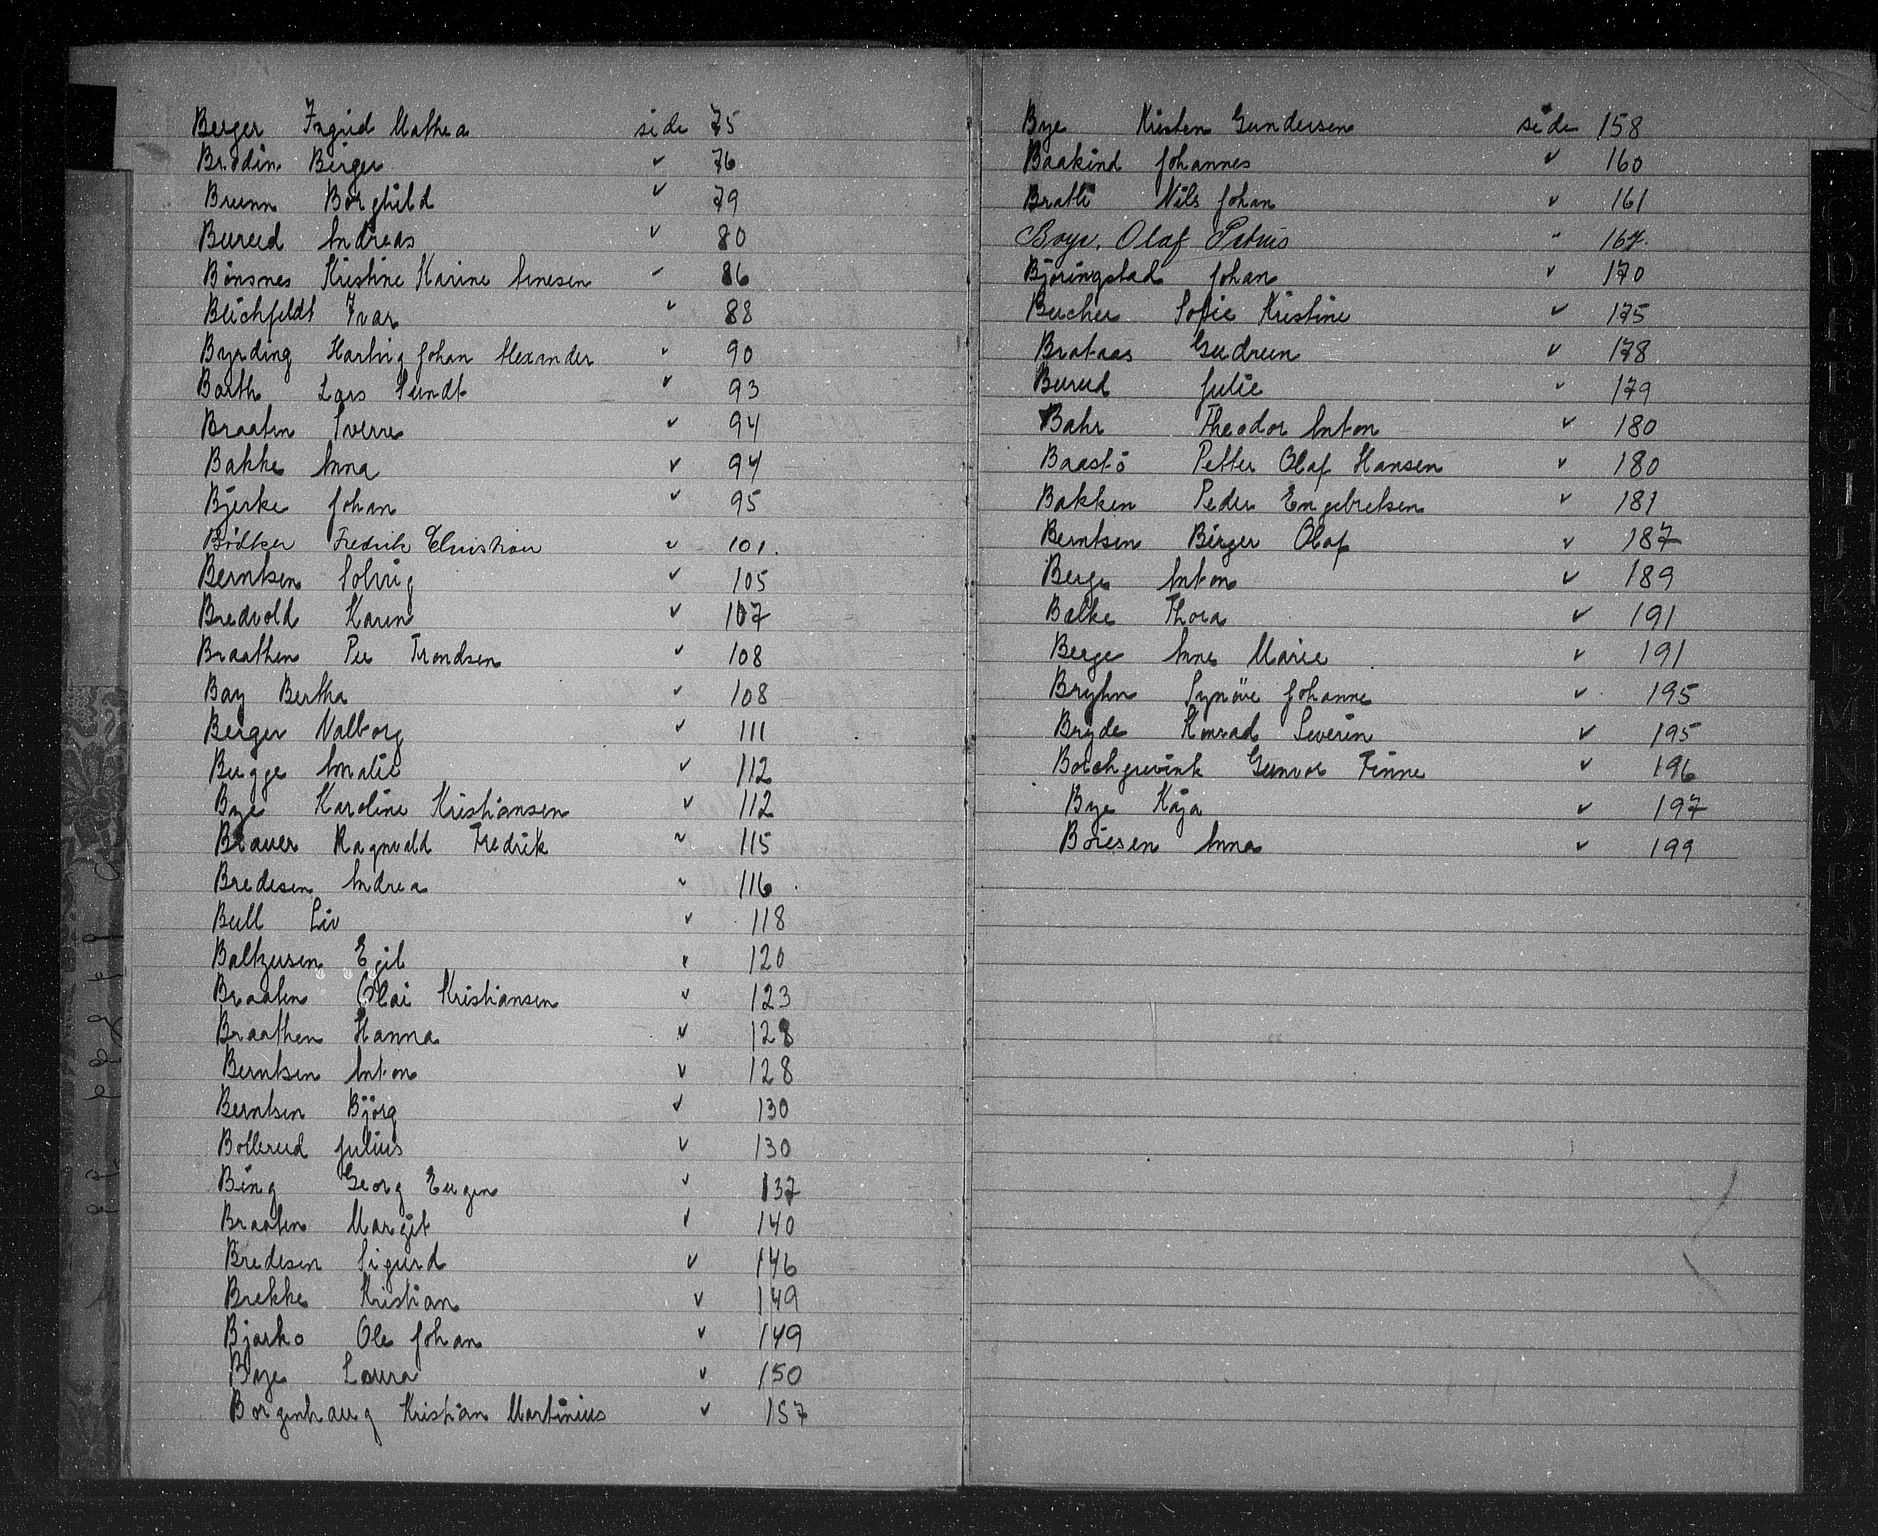 Berger Ingrid Mathea side 75
Brodin Birger " 76
Brunn Borghild " 79
Burud Andreas " 80
Bønsnes Kristine Karine Arnesen " 86
Blichfeldt Ivar " 88
Byrding Hartvig Johan Alexander " 90
Barth Lars Sundt " 93
Braaten Sverre " 94
Bakke Anna " 94
Bjerke Johan " 95
Bødtker Fredrik Christian " 101.
Berntsen Solvig " 105
Bredvold Karen " 107
Braathen Per Trondsen " 108
Bay Bertha " 108
Berger Valborg " 111
Bugge Amalie " 112
Bye Karoline Kristiansen " 112
Brauer Ragnvald Fredrik " 115
Bredesen Andrea " 116
Bull Liv " 118
Baltzersen Egil " 120
Braaten Olai Kristiansen " 123
Braathen Hanna " 128
Berntsen Anton " 128
Berntsen Björg " 130
Bollerud Julius " 130
Bing Georg Eugen " 137
Braaten Margit " 140
Bredesen Sigurd " 146
Brekke Kristian " 149
Bjarko Ole Johan " 149
Bye Laura " 150
Borgenhaug Kristian Martinius " 157
Bye Kristen Gundersen side 158
Baakind Johannes " 160
Bratli Nils Johan " 161
Boye. Olaf Petrus " 167.
Björingstad Johan " 170
Bucher Sofie Kristine " 175
Brataas Gudrun " 178
Burud Julie " 179
Bahr Theodor Anton " 180
Baastö Petter Olaf Hansen " 180
Bakken Peder Engebretsen " 181
Berntsen Birger Olaf " 187
Berge Anton " 189
Balke Thora " 191
Berge Anne Marie " 191
Bryhn Synöve Johanne " 195
Bryde Konrad Severin " 195
Borchgrevink Gunvor Finne " 196
Bye Kaja " 197
Boiesen Anna " 199